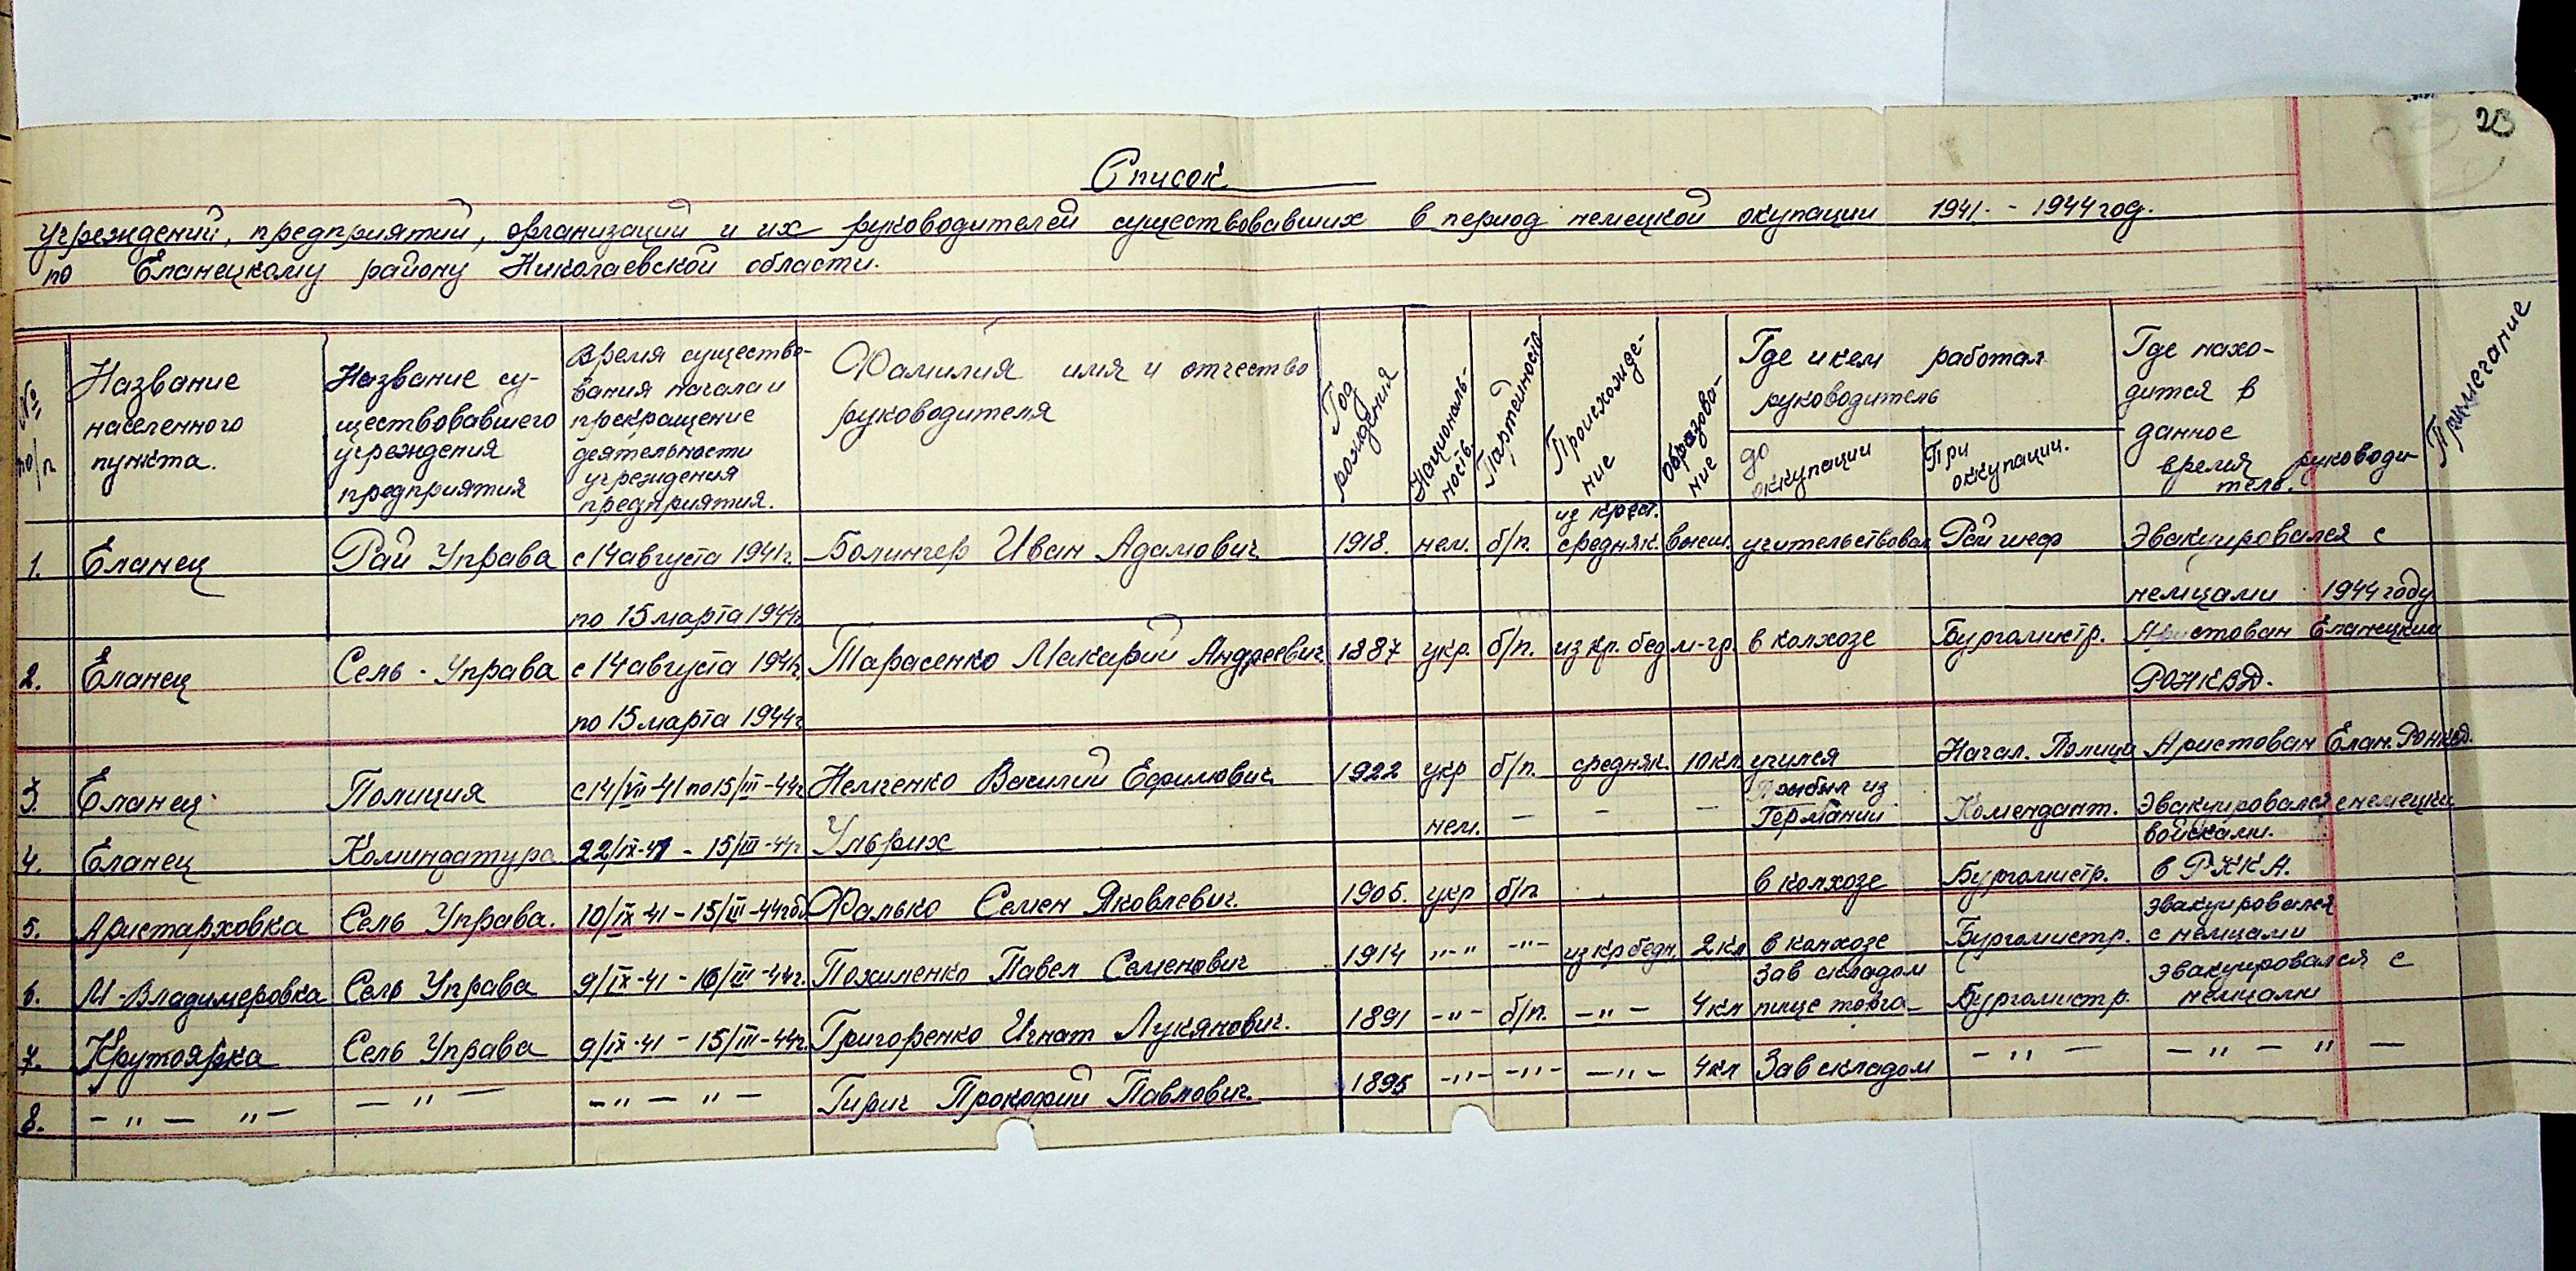 23
Список
учреждений, предприятий, организаций и их руководителей существовавших в период немецкой окупации 1941 - - 1944 год.
по Еланецкому району Николаевской области.
№ по/п
Название населенного пункта.
Название существовавшего учреждения предприятия
Время существования начала и прекращение деятельности учреждения предприятия.
Фамилия имя и отчество руководителя
Год рождения
Националь-ность.
Партейность
Происхожде-ние
Образова-ние
Где и кем работал руководитель
до оккупации
При оккупации.
Где нахо-дится в данное время руководи-тель.
Примечание
1. Еланец Рай Управа с 14 августа 1941г. по 15 марта 1944г. Болингер Иван Адамович 1918. нем. б/п. из крест. средняк. высш. учительствовал Рай шеф Эвакуировался с немцами 1944 году
2. Еланец Сель - Управа с 14 августа 1941г. по 15 марта 1944г Тарасенко Макарий Андреевич 1887 укр. б/п. из кр. бед м-гр. в колхозе Бургомистр. Аристован Еланецким РОНКВД.
3. Еланец Полиция с 14/VIII-41 по 15/III-44г Немченко Василий Ефимович 1922 укр б/п. средняк. 10 кл учился Начал. Полица Аристован Елан. РОНКВД.
4. Еланец Коминдатура 22/IX-41 - 15/III-44г. Ульрих нем. — - — Прибыл из Германии Комендант. Эвакуировался с немецки войсками.
5. Аристарховка Сель Управа. 10/IX-41 - 15/III-44год Фалько Семен Яковлевич. 1905. укр б/п . в колхозе Бургомистр. в РККА.
6. М-Владимеровка Сель Управа 9/IX-41 - 16/III-44г. Похиленко Павел Семенович 1914 "-" -"- из кр бедн. 2 кл в колхозе Бургомистр. эвакуировался с немцами
7. Крутоярка Сель Управа 9/IX-41 - 15/III-44г. Григоренко Игнат Лукянович. 1891 -"- б/п. -"- 4 кл Зав складом пище торга Бургомистр. эвакуировался с немцами
8. -"- "- -"- -"-"- Гирич Прокофий Павлович. 1895 -"- -"- -"- 4 кл Зав складом -"- -"-"-